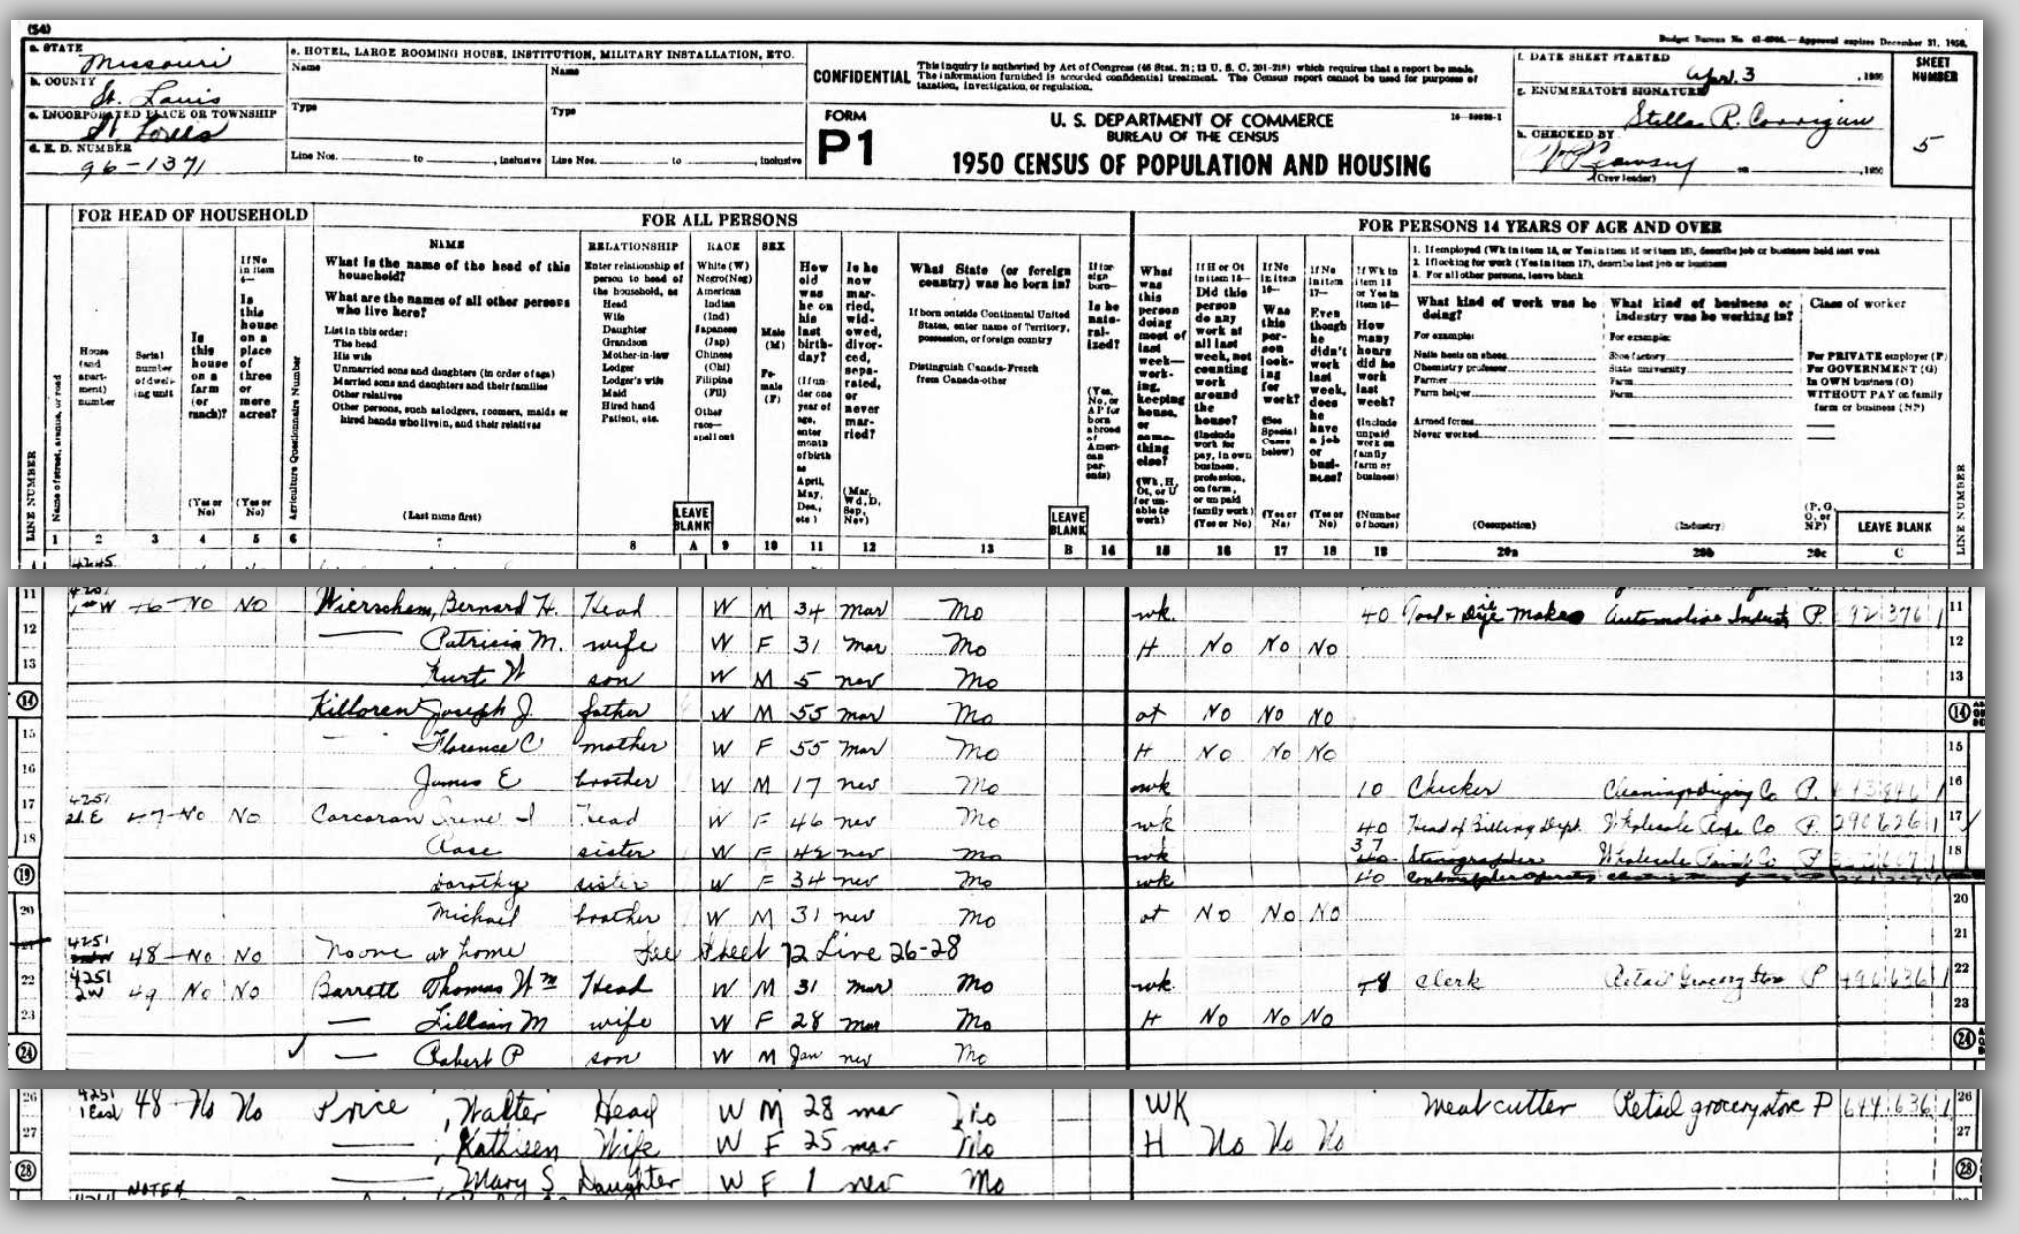 (54)
Budget Bureau No. 41-4994.—Approval expires December 31, 1950.
a. STATE Missouri
b. COUNTY St. Louis
c. INCORPORATED PLACE OR TOWNSHIP St Louis
d. E. D. NUMBER 96-1371
e. HOTEL, LARGE ROOMING HOUSE, INSTITUTION, MILITARY INSTALLATION, ETC.
Name Name
Type Type
Line Nos. to , inclusive Line Nos. to , inclusive
CONFIDENTIAL
This inquiry is authorized by Act of Congress (46 Stat. 21; 13 U. S. C. 201-218) which requires that a report be made.
The information furnished is accorded confidential treatment. The Census report cannot be used for purposes of
taxation, investigation, or regulation.
FORM
P1
U. S. DEPARTMENT OF COMMERCE
BUREAU OF THE CENSUS
1950 CENSUS OF POPULATION AND HOUSING
f. DATE SHEET STARTED Apr. 3 , 1950
g. ENUMERATOR'S SIGNATURE Stella R. Corrigan
h. CHECKED BY on , 1950
(Crew leader)
SHEET NUMBER
5
FOR HEAD OF HOUSEHOLD
FOR ALL PERSONS
FOR PERSONS 14 YEARS OF AGE AND OVER
LINE NUMBER
Name of street, avenue, or road
House (and apartment) number
Serial number of dwelling unit
Is this house on a farm (or ranch)?
(Yes or No)
If No in item 4—
Is this house on a place of three or more acres?
(Yes or No)
Agriculture Questionnaire Number
NAME
What is the name of the head of this household?
What are the names of all other persons who live here?
List in this order:
The head
His wife
Unmarried sons and daughters (in order of age)
Married sons and daughters and their families
Other relatives
Other persons, such as lodgers, roomers, maids or hired hands who live in, and their relatives
(Last name first)
RELATIONSHIP
Enter relationship of person to head of the household, as
Head
Wife
Daughter
Grandson
Mother-in-law
Lodger
Lodger's wife
Maid
Hired hand
Patient, etc.
LEAVE BLANK
RACE
White (W)
Negro (Neg)
American Indian (Ind)
Japanese (Jap)
Chinese (Chi)
Filipino (Fil)
Other race—spell out
SEX
Male (M)
Female (F)
How old was he on his last birthday?
(If under one year of age, enter month of birth as April, May, Dec., etc.)
Is he now married, widowed, divorced, separated, or never married?
(Mar, Wd, D, Sep, Nev)
What State (or foreign country) was he born in?
If born outside Continental United States, enter name of Territory, possession, or foreign country
Distinguish Canada-French from Canada-other
LEAVE BLANK
If foreign born—
Is he naturalized?
(Yes, No, or AP for born abroad of American parents)
What was this person doing most of last week—working, keeping house, or something else?
(Wk, H, Ot, or U for unable to work)
If H or Ot in item 15—
Did this person do any work at all last week, not counting work around the house?
(Include work for pay, in own business, profession, on farm, or unpaid family work)
(Yes or No)
If No in item 16—
Was this person looking for work?
(See Special Cases below)
(Yes or No)
If No in item 17—
Even though he didn't work last week, does he have a job or business?
(Yes or No)
If Wk in item 15 or Yes in item 16—
How many hours did he work last week?
(Include unpaid work on family farm or business)
(Number of hours)
1. If employed (Wk in item 15, or Yes in item 16 or item 18), describe job or business held last week
2. If looking for work (Yes in item 17), describe last job or business
3. For all other persons, leave blank
What kind of work was he doing?
For example:
Nails heels on shoes
Chemistry professor
Farmer
Farm helper
Armed forces
Never worked
(Occupation)
What kind of business or industry was he working in?
For example:
Shoe factory
State university
Farm
Farm
(Industry)
Class of worker
For PRIVATE employer (P)
For GOVERNMENT (G)
In OWN business (O)
WITHOUT PAY on family farm or business (NP)
(P, G, O, or NP)
LEAVE BLANK
LINE NUMBER
1 2 3 4 5 6 7 8 A 9 10 11 12 13 B 14 15 16 17 18 19 20a 20b 20c C
4245
11 No No Wierschem, Bernard H. Head W M 34 Mar Mo wk 40 Tool & Die Maker Automotive Indust P. 11
12 Patricia M. wife W F 31 Mar Mo H No No No 12
13 Kurt W son W M 5 nev Mo 13
14 Killoren Joseph J. father W M 55 mar Mo ot No No No 14
15 Florence C mother W F 55 Mar Mo H No No No 15
16 James E brother W M 17 nev Mo wk 10 Checker Cleaning & Dying Co P. 16
17 4251 2d. E 47 No No Corcoran Irene I Head W F 46 nev Mo wk 40 Head of Billing Dept. Wholesale Co P 290 626 1 17
18 Rose sister W F 42 nev Mo wk 37 40 Stenographer Wholesale Paint Co P 18
19 Dorothy sister W F 34 nev Mo wk 40
20 Michael brother W M 31 nev Mo ot No No No 20
21 4251 48 No No No one at home See Sheet 72 Line 26-28 21
22 4251 2W 49 No No Barrett Thomas Wm Head W M 31 Mar Mo wk 48 Clerk Retail Grocery Store P 490 636 1 22
23 Lillian M wife W F 28 mar Mo H No No No 23
24 Robert P son W M Jan nev Mo 24
26 4251 1 East 48 No No Price, Walter Head W M 28 mar Mo WK Meat cutter Retail grocery store P 644 636 1 26
27 , Kathleen Wife W F 25 mar Mo H No No No 27
28 , Mary S Daughter W F 1 nev Mo 28
NOTE